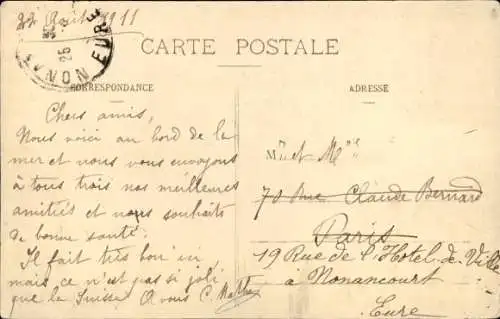 22 Août 1911
CARTE POSTALE
CORRESPONDANCE
ADRESSE
25
EURE
Chers amis,
Nous voici au bord de la
mer et nous vous envoyons
à tous trois nos meilleures
amitiés et nous souhaits
de bonne santé.
Il fait très bon ici,
mais ce n'est pas si joli
que la Suisse. A vous C.
Mr et Me
70 Rue Claude Bernard
Paris
19 Rue de l'Hotel-de-Ville
à Nonancourt
Eure